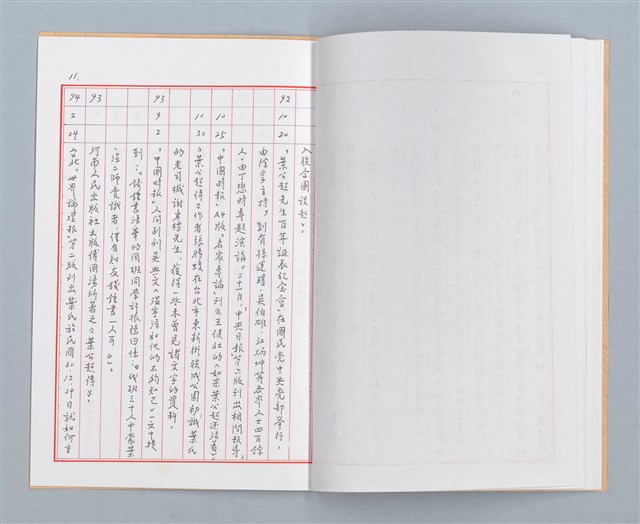 11.
入聯合國談起》。
92 10 20 「葉公超先生百年誕辰紀念會」在國民党中央党部舉行，
由徐亨主持，到有孫運璿、吳伯雄、江炳坤等各界人士四百餘
人，由丁懋時專題演講。二十一日，中央日報第六版刊出相關報導。
10 25 「中國時報」A4版「名家專論」刊出王健壯的《如果葉公超還活著》。
10 30 《葉公超傳》作者張騰蛟在台北市東新街後山公園初識葉氏
的老司機謝先生，獲得一些未曾見諸文字的資料。
93 9 2 「中國時報」人間副刊吳興文《溫寧淳和他的不夠知己》一文中提
到：「錢鍾書清華的同班同學許振德回憶：『我班三十人中蒙葉
、溫二師賞識者，僅有知友錢鍾書一人耳。』」
93 河南人民出版社出版傅國涌所著之《葉公超傳》。
94 2 24 台北「世界論壇報」第二版刊出葉氏於民國60.12.24日就如何重